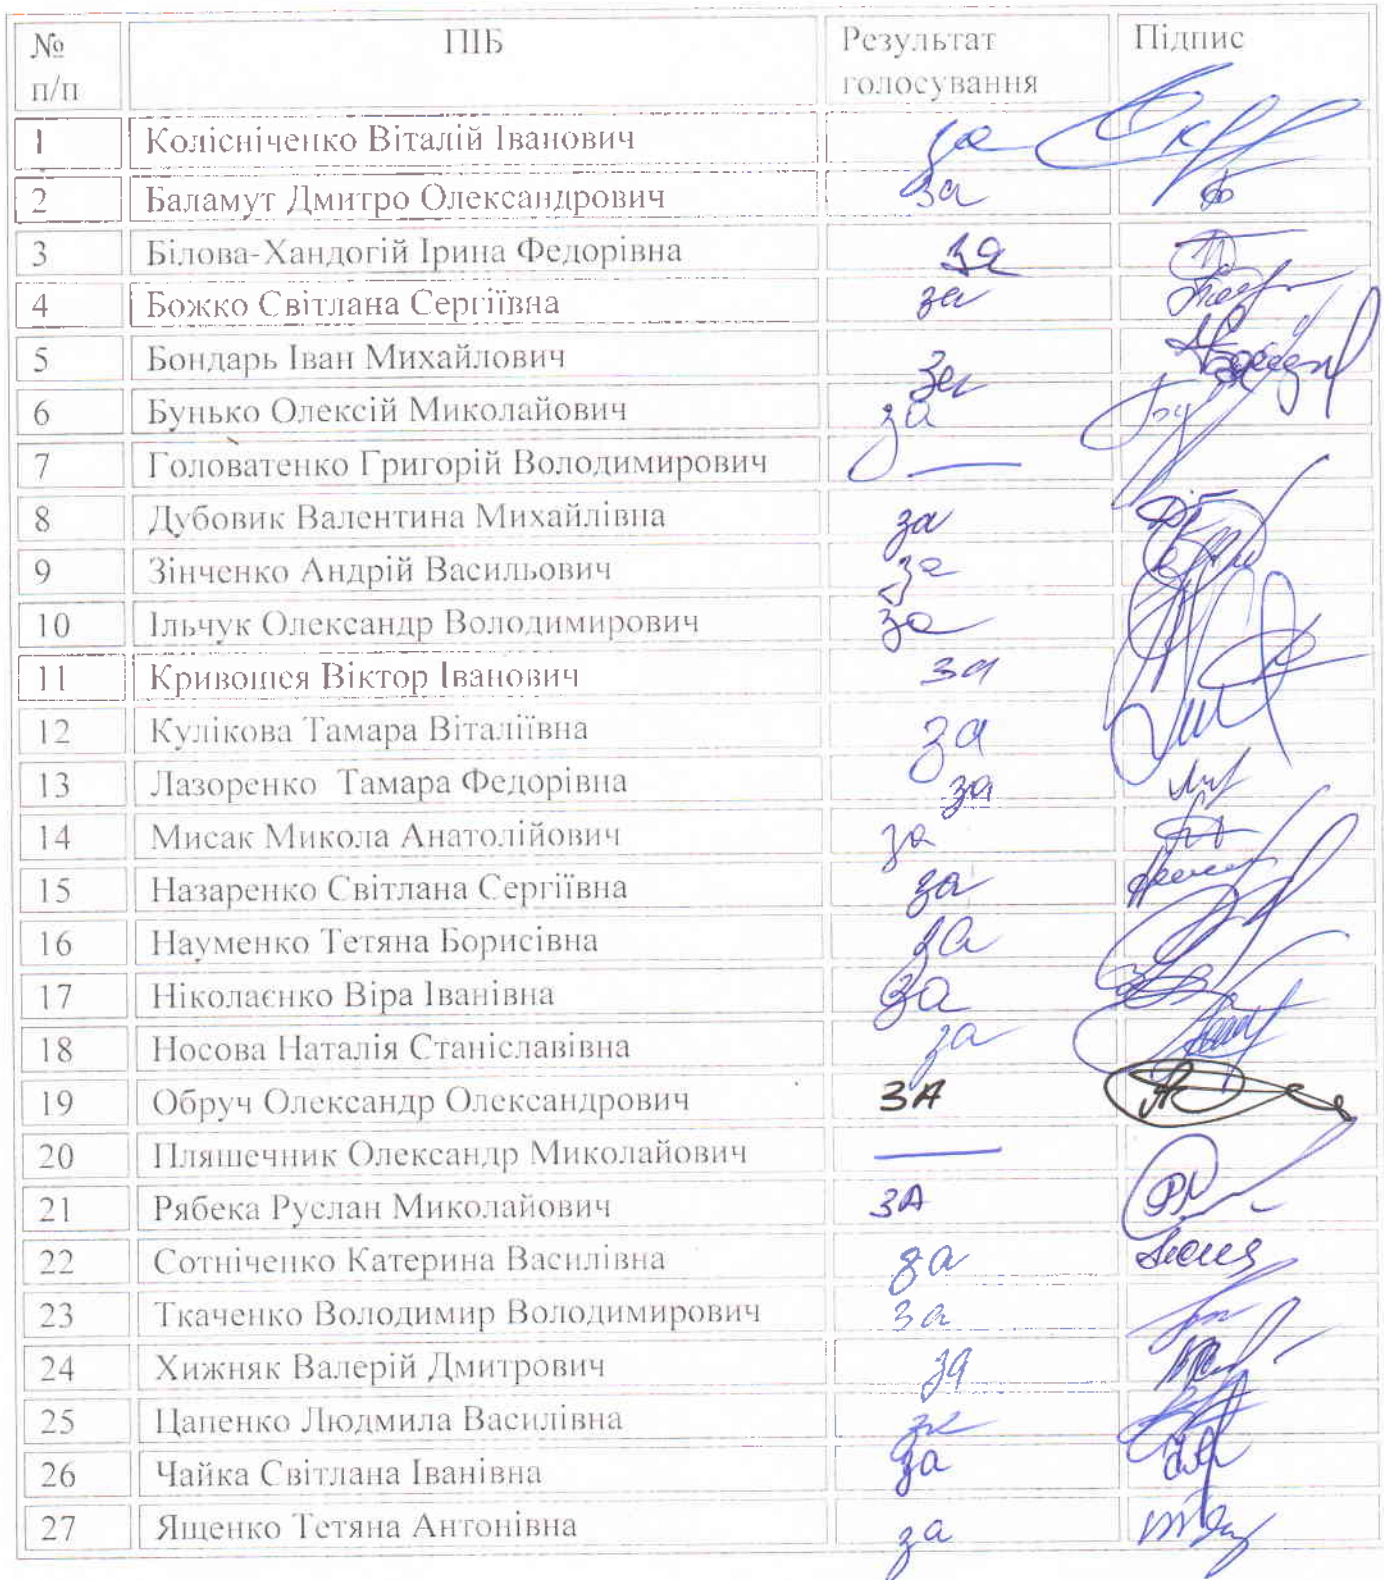 № п/п ПІБ Результат голосування Підпис
1 Колісніченко Віталій Іванович за
2 Баламут Дмитро Олександрович за
3 Білова-Хандогій Ірина Федорівна за
4 Божко Світлана Сергіївна за
5 Бондарь Іван Михайлович за
6 Бунько Олексій Миколайович за
7 Головатенко Григорій Володимирович —
8 Дубовик Валентина Михайлівна за
9 Зінченко Андрій Васильович за
10 Ільчук Олександр Володимирович за
11 Кривошея Віктор Іванович за
12 Кулікова Тамара Віталіївна за
13 Лазоренко Тамара Федорівна за
14 Мисак Микола Анатолійович за
15 Назаренко Світлана Сергіївна за
16 Науменко Тетяна Борисівна за
17 Ніколаєнко Віра Іванівна за
18 Носова Наталія Станіславівна за
19 Обруч Олександр Олександрович ЗА
20 Пляшечник Олександр Миколайович —
21 Рябека Руслан Миколайович ЗА
22 Сотніченко Катерина Василівна за
23 Ткаченко Володимир Володимирович за
24 Хижняк Валерій Дмитрович за
25 Цапенко Людмила Василівна за
26 Чайка Світлана Іванівна за
27 Ященко Тетяна Антонівна за